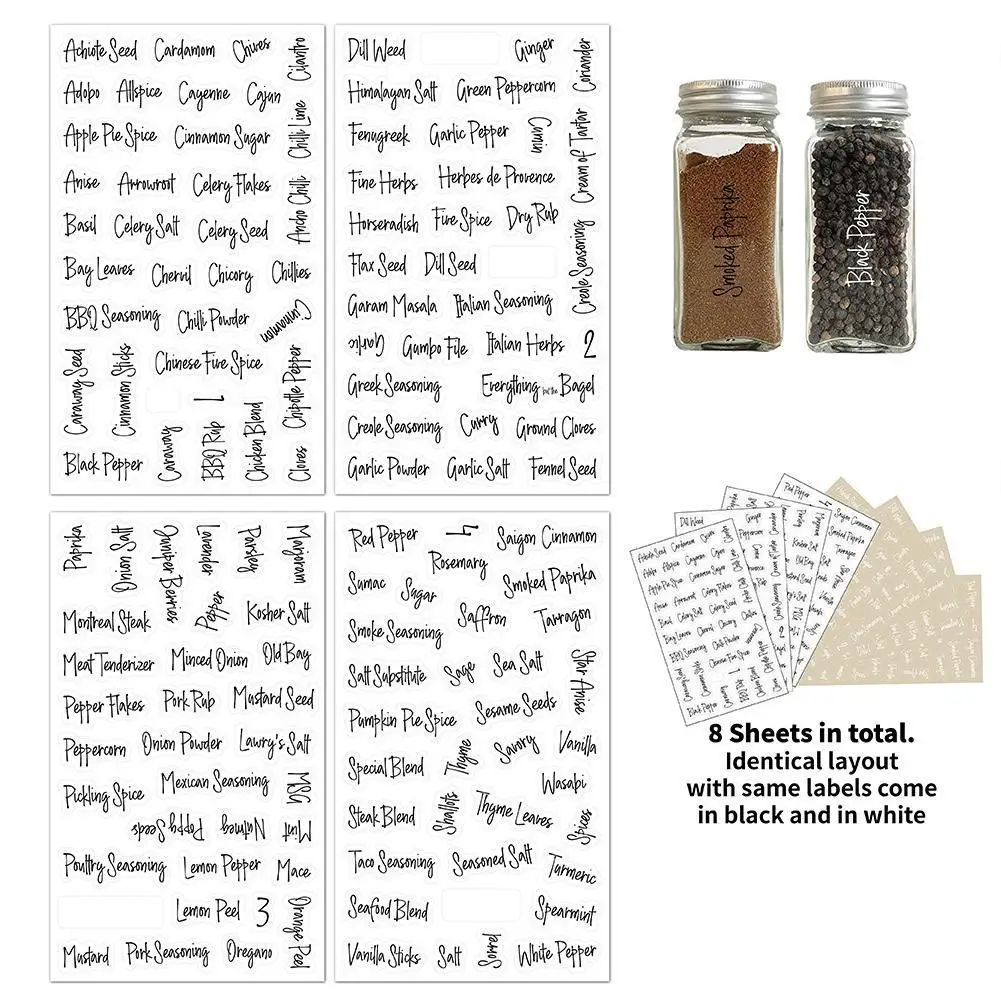 Achiote Seed Cardamom Chives Cilantro
Adobo Allspice Cayenne Cajun
Apple Pie Spice Cinnamon Sugar Chilli Lime
Anise Arrowroot Celery Flakes Ancho Chilli
Basil Celery Salt Celery Seed
Bay Leaves Chervil Chicory Chillies
BBQ Seasoning Chilli Powder Cinnamon
Chinese Five Spice
Caraway Seed Cinnamon Sticks Chipotle Pepper
Black Pepper Caraway BBQ Rup 1 Chicken Blend Cloves
Dill Weed Ginger Coriander
Himalayan Salt Green Peppercorn
Fenugreek Garlic Pepper Cumin Cream of Tartar
Fine Herbs Herbes de Provence
Horseradish Five Spice Dry Rub
Flax Seed Dill Seed Creole Seasoning
Garam Masala Italian Seasoning
Garlic Gumbo File Italian Herbs 2
Greek Seasoning Everything but the Bagel
Creole Seasoning Curry Ground Cloves
Garlic Powder Garlic Salt Fennel Seed
Smoked Paprika
Black Pepper
Paprika Onion Salt Juniper Berries Lavender Parsley Marjoram
Montreal Steak Pepper Kosher Salt
Meat Tenderizer Minced Onion Old Bay
Pepper Flakes Pork Rub Mustard Seed
Peppercorn Onion Powder Lawry's Salt
Pickling Spice Mexican Seasoning MSG
Poppy Seeds Nutmeg Mint
Poultry Seasoning Lemon Pepper Mace
Lemon Peel 3 Orange Peel
Mustard Pork Seasoning Oregano
Red Pepper 4 Saigon Cinnamon
Rosemary
Sumac Sugar Smoked Paprika
Smoke Seasoning Saffron Tarragon
Salt Substitute Sage Sea Salt Star Anise
Pumpkin Pie Spice Sesame Seeds
Special Blend Thyme Savory Vanilla
Wasabi
Steak Blend Shallots Thyme Leaves Spices
Taco Seasoning Seasoned Salt Turmeric
Seafood Blend Spearmint
Vanilla Sticks Salt Sorrel White Pepper
8 Sheets in total.
Identical layout
with same labels come
in black and in white